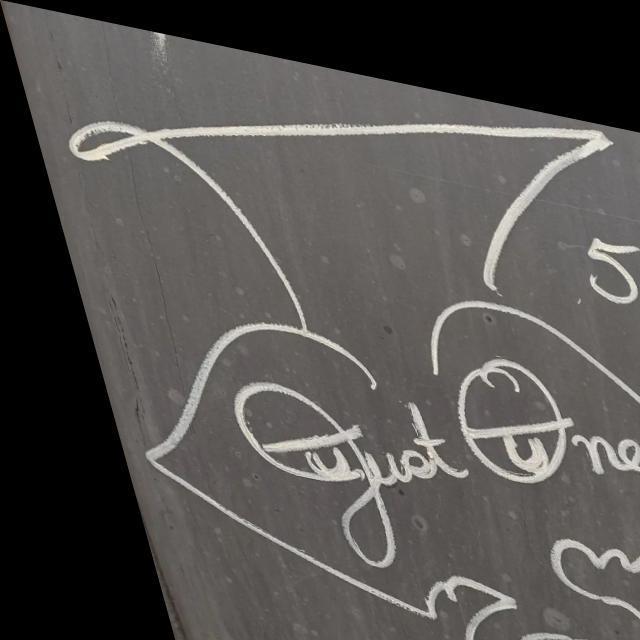 5
just One